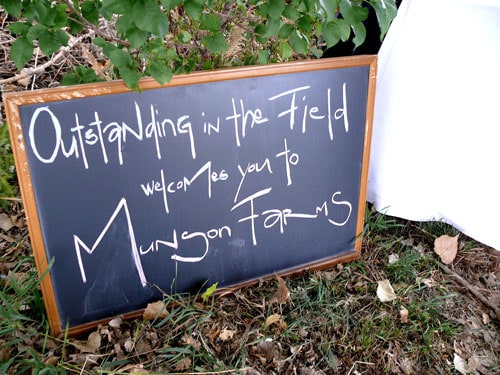 Outstanding in the Field
welcomes you to
Munson Farms